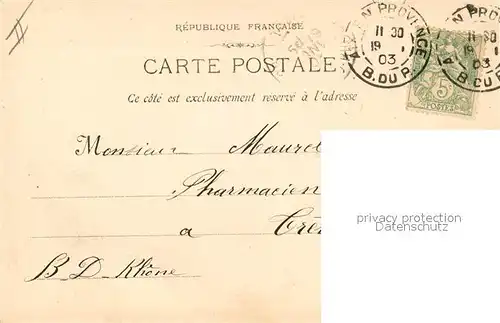 RÉPUBLIQUE FRANÇAISE
CARTE POSTALE
Ce côté est exclusivement reservé à l'adresse
AIX EN PROVENCE
11 30
19
03
B. DU R.
11 30
19
03
B. DU R.
5
POSTES
Monsieur Maurel
Pharmacien
a
B-D-Rhône
privacy protection
Datenschutz